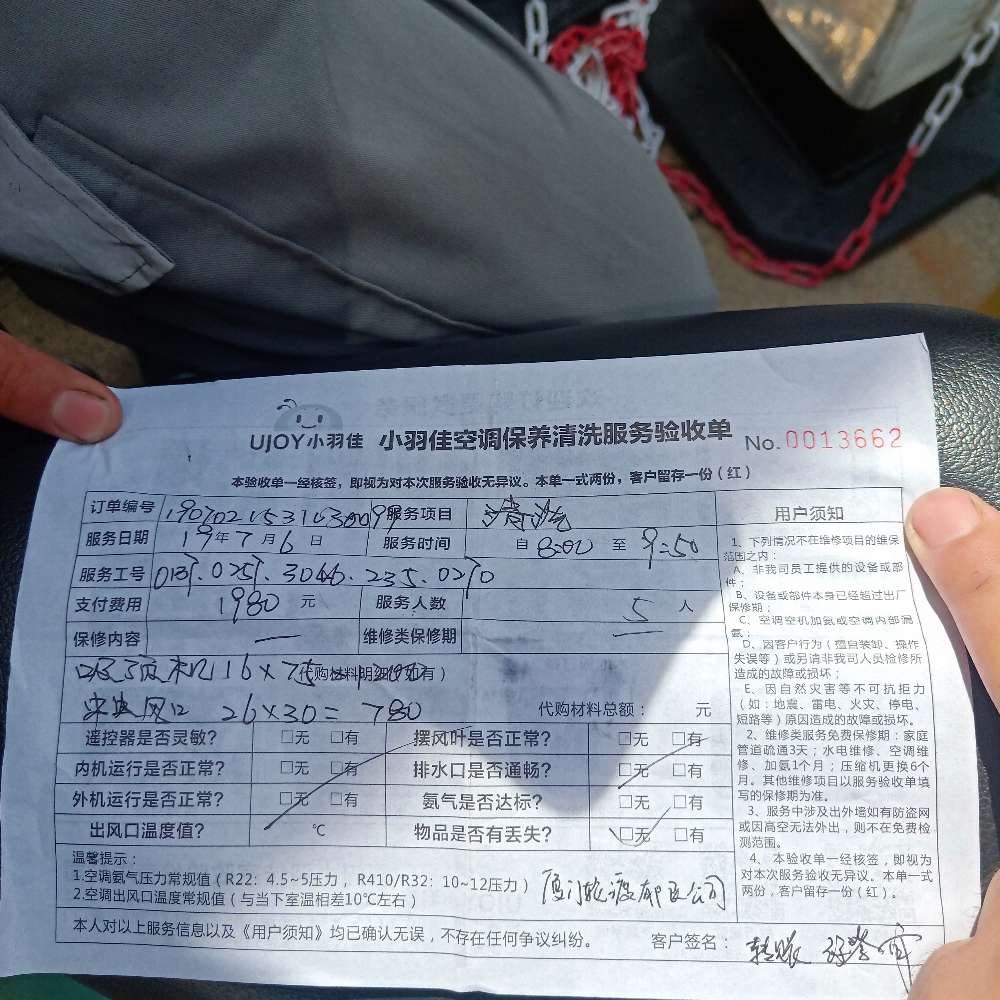 UJOY小羽佳 小羽佳空调保养清洗服务验收单 No.0013662
本验收单一经核签，即视为对本次服务验收无异议。本单一式两份，客户留存一份（红）
订单编号 服务项目 清洗
服务日期 19年7月6日 服务时间 自8:00至9:50
服务工号
支付费用 1980元 服务人数 5人
保修内容 — 维修类保修期 —
代购材料明细（如有）
吸顶机16×75=1200
中央风口 26×30=780 代购材料总额： 元
遥控器是否灵敏？ □无 □有 摆风叶是否正常？ □无 □有
内机运行是否正常？ □无 □有 排水口是否通畅？ □无 □有
外机运行是否正常？ □无 □有 氨气是否达标？ □无 □有
出风口温度值？ ℃ 物品是否有丢失？ □无 □有
温馨提示：
1.空调氨气压力常规值（R22：4.5~5压力，R410/R32：10~12压力）
2.空调出风口温度常规值（与当下室温相差10℃左右）
厦门轮渡有限公司
本人对以上服务信息以及《用户须知》均已确认无误，不存在任何争议纠纷。 客户签名： 转账
用户须知
1、下列情况不在维修项目的维保
范围之内：
A、非我司员工提供的设备或部
件；
B、设备或部件本身已经超过出厂
保修期；
C、空调空机加氨或空调内部漏
氨；
D、因客户行为（擅自装卸、操作
失误等）或另请非我司人员检修所
造成的故障或损坏；
E、因自然灾害等不可抗拒力
（如：地震、雷电、火灾、停电、
短路等）原因造成的故障或损坏。
2、维修类服务免费保修期：家庭
管道疏通3天；水电维修、空调维
修、加氨1个月；压缩机更换6个
月。其他维修项目以服务验收单填
写的保修期为准。
3、服务中涉及出外墙如有防盗网
或因高空无法外出，则不在免费检
测范围。
4、本验收单一经核签，即视为
对本次服务验收无异议。本单一式
两份，客户留存一份（红）。